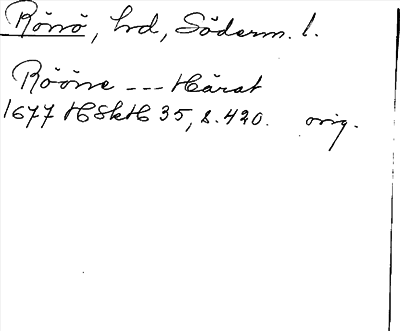 Rönö, hd, Söderm. l.
Rööne --- Härat
1677 HSkH 35, s. 420. orig.